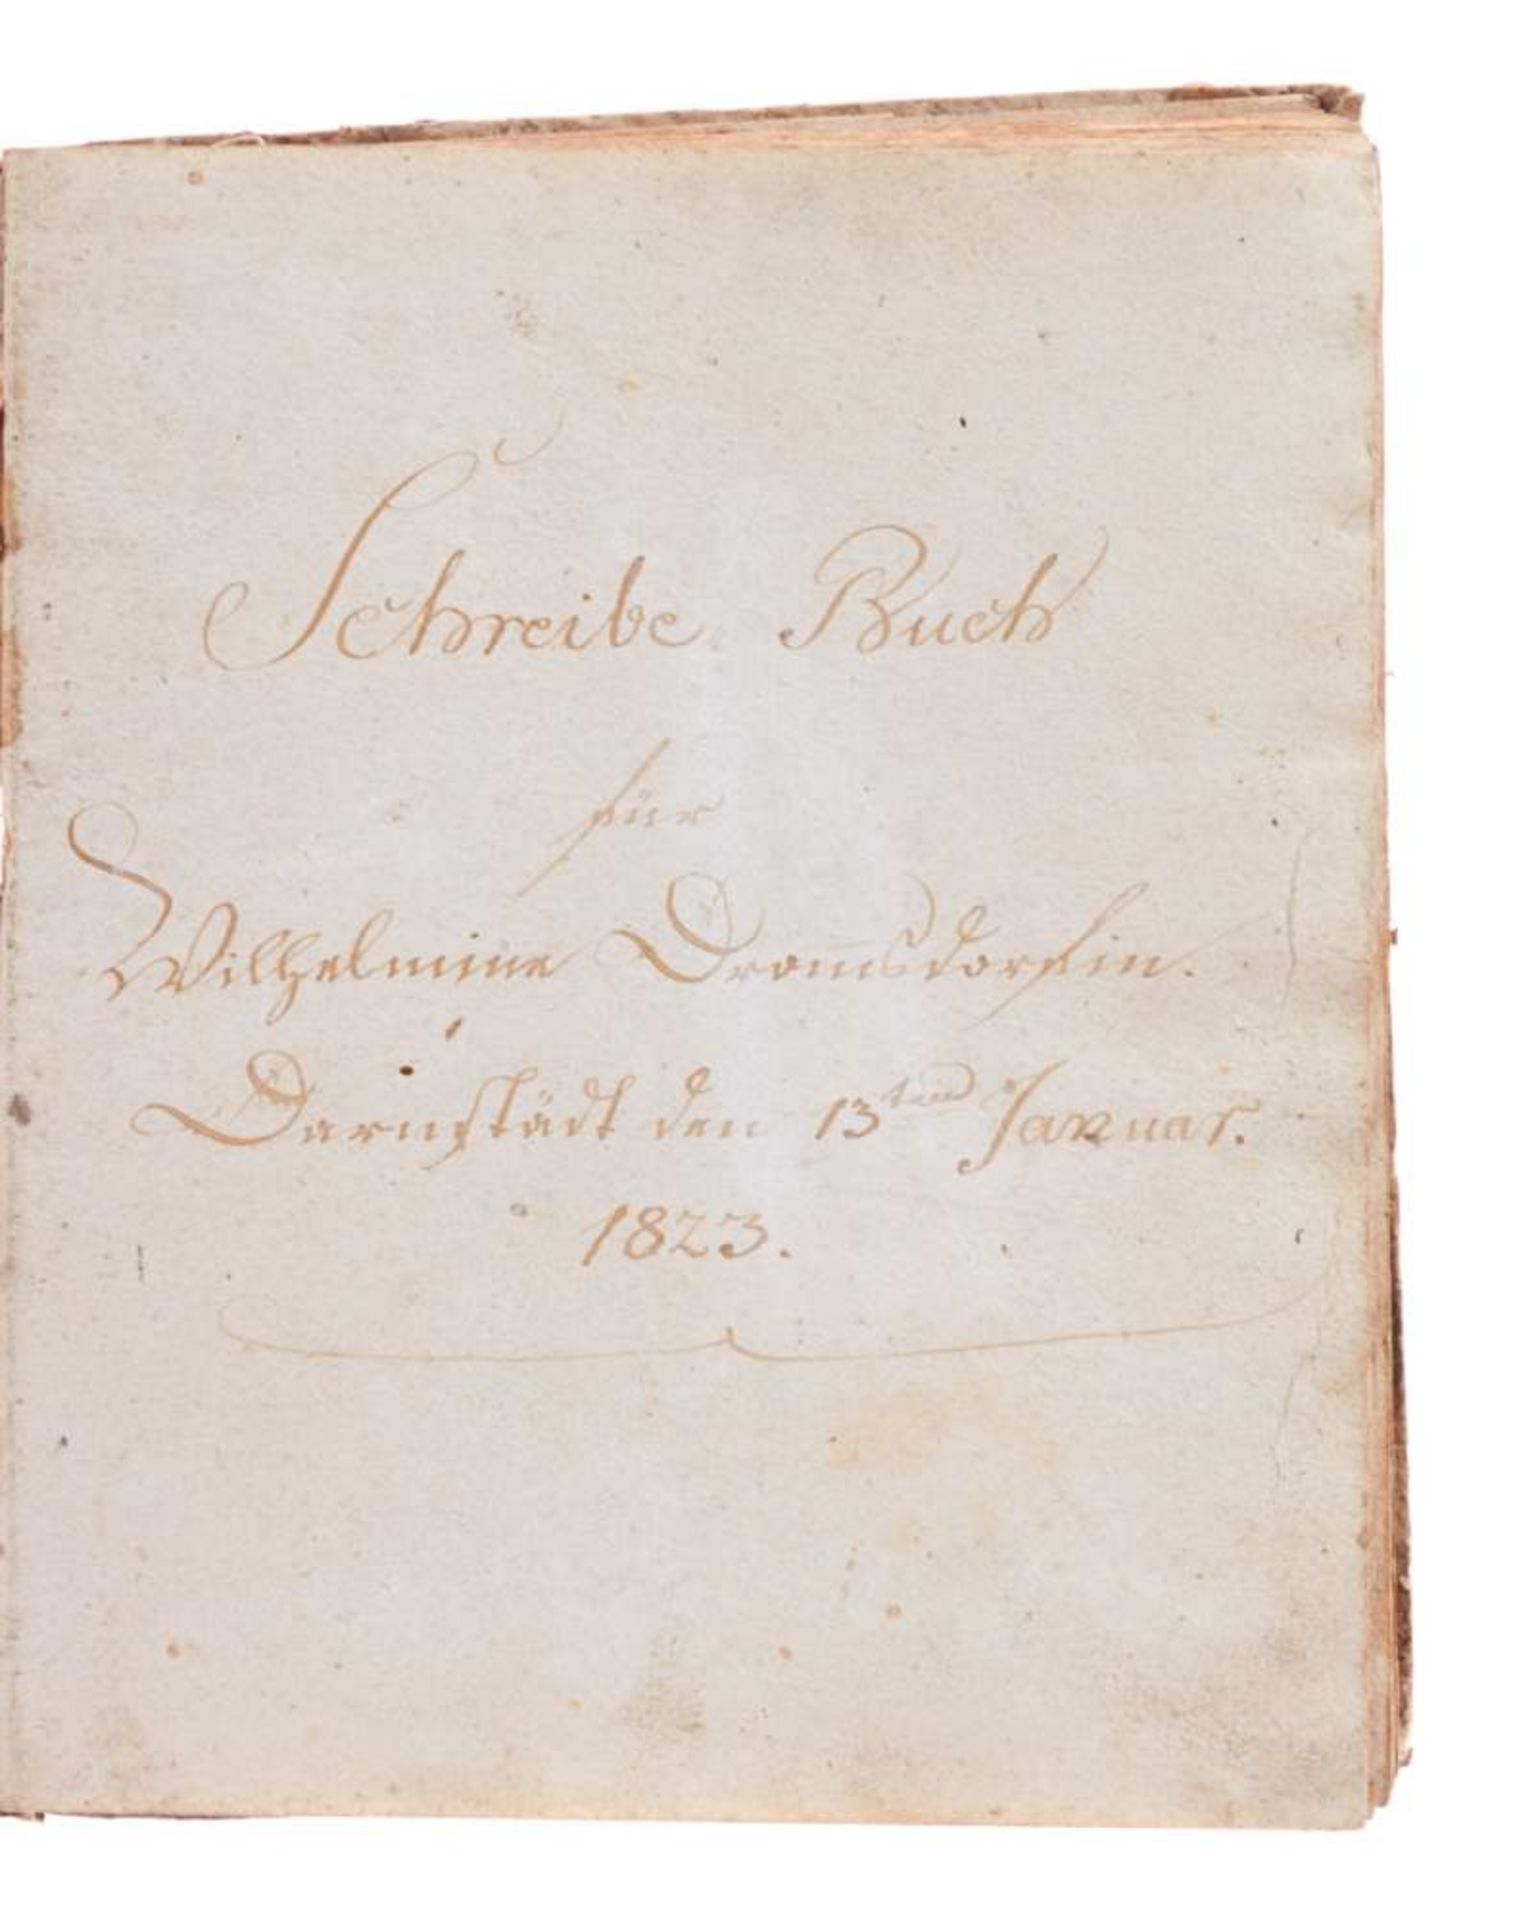 Schreibe Buch
für
Wilhelmine Drom̅sdorfin.
Darnstädt den 13ten Januar.
1823.